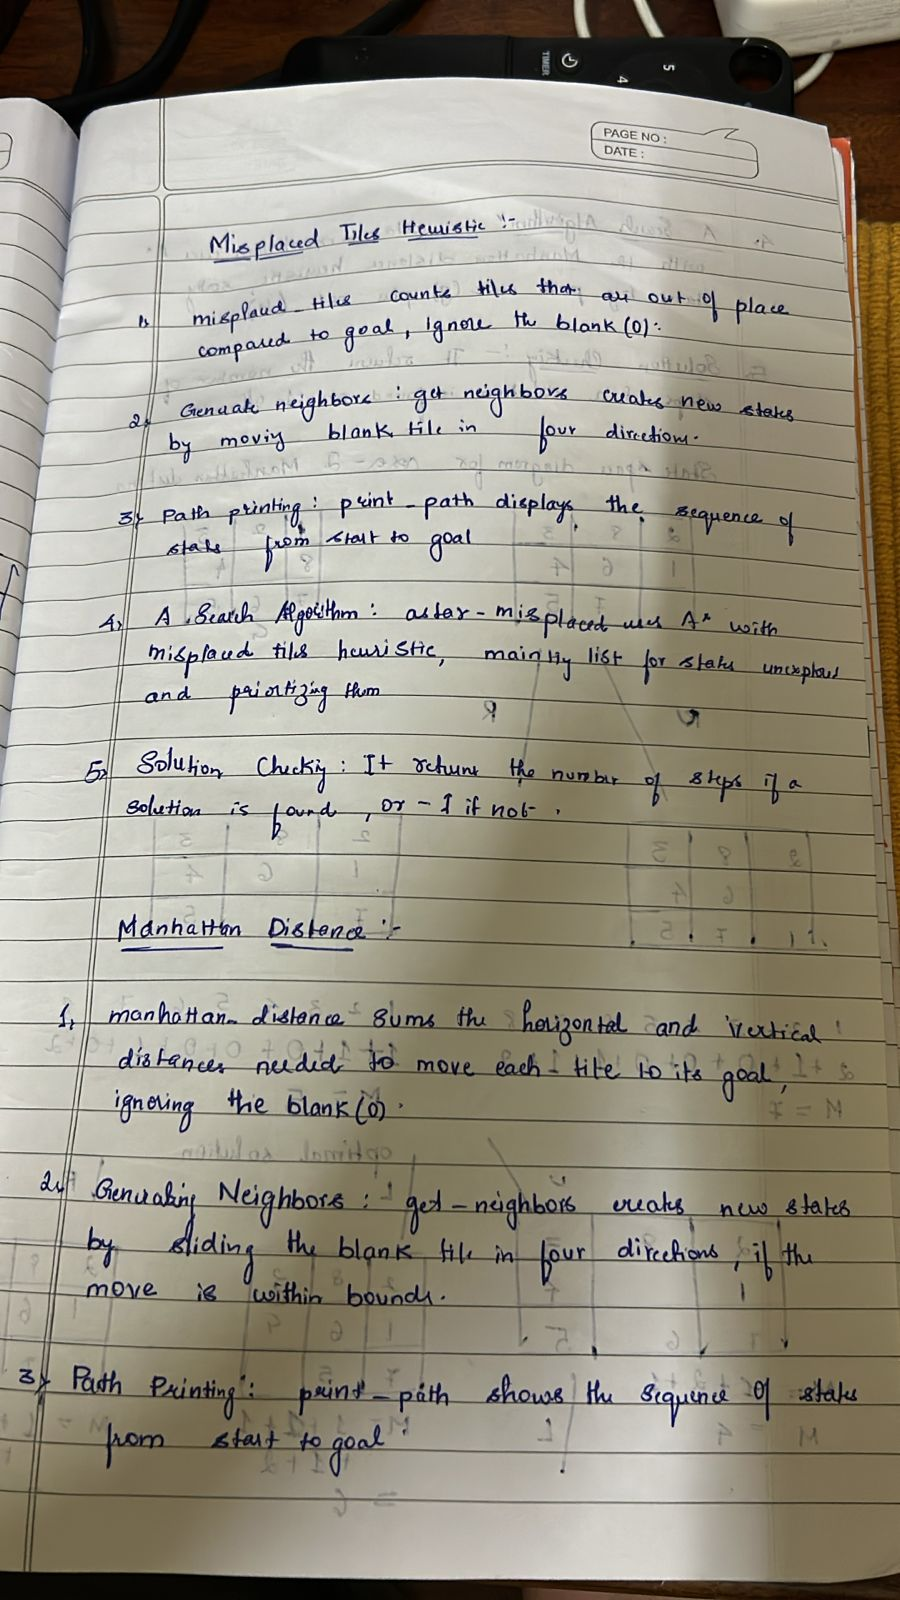 TIMER
5
4
PAGE NO :
DATE :
Misplaced Tiles Heuristic :-
1) misplaced-tiles counts tiles that are out of place
compared to goal, ignore the blank (0).
2) Generate neighbors : get neighbors creates new states
by moving blank tile in four directions.
3) Path printing : print-path displays the sequence of
states from start to goal
4) A Search Algorithm : astar-misplaced uses A* with
misplaced tiles heuristic, list for states unexplored
and priortizing them
5) Solution Checking : It returns the number of steps if a
solution is found, or -1 if not.
Manhattan Distance :-
1, manhattan-distance sums the horizontal and vertical
distances needed to move each-tile to its goal,
ignoring the blank (0).
2) Generating Neighbors : get-neighbors creates new states
by sliding the blank tile in four directions, if the
move is within bounds.
3) Path Printing : print-path shows the sequence of states
from start to goal.